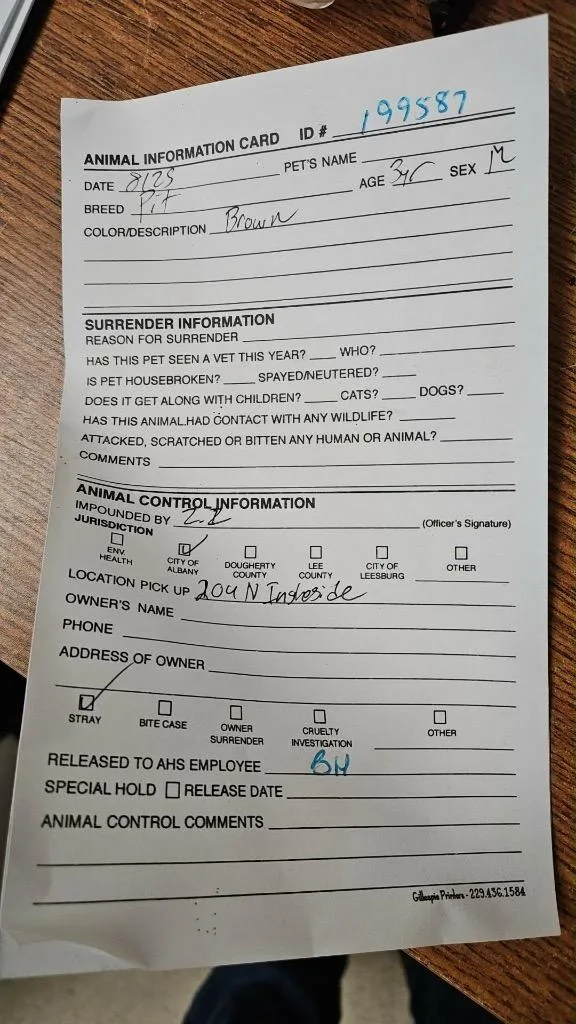 ANIMAL INFORMATION CARD ID # 199587
DATE 8125 PET'S NAME
BREED Pit AGE 3yr SEX M
COLOR/DESCRIPTION Brown
SURRENDER INFORMATION
REASON FOR SURRENDER
HAS THIS PET SEEN A VET THIS YEAR? WHO?
IS PET HOUSEBROKEN? SPAYED/NEUTERED?
DOES IT GET ALONG WITH CHILDREN? CATS? DOGS?
HAS THIS ANIMAL HAD CONTACT WITH ANY WILDLIFE?
ATTACKED, SCRATCHED OR BITTEN ANY HUMAN OR ANIMAL?
COMMENTS
ANIMAL CONTROL INFORMATION
IMPOUNDED BY (Officer's Signature)
JURISDICTION
ENV HEALTH CITY OF ALBANY DOUGHERTY COUNTY LEE COUNTY CITY OF LEESBURG OTHER
LOCATION PICK UP 204 N
OWNER'S NAME
PHONE
ADDRESS OF OWNER
STRAY BITE CASE OWNER SURRENDER CRUELTY INVESTIGATION OTHER
RELEASED TO AHS EMPLOYEE BH
SPECIAL HOLD RELEASE DATE
ANIMAL CONTROL COMMENTS
Gillespie Printers - 229.436.1584